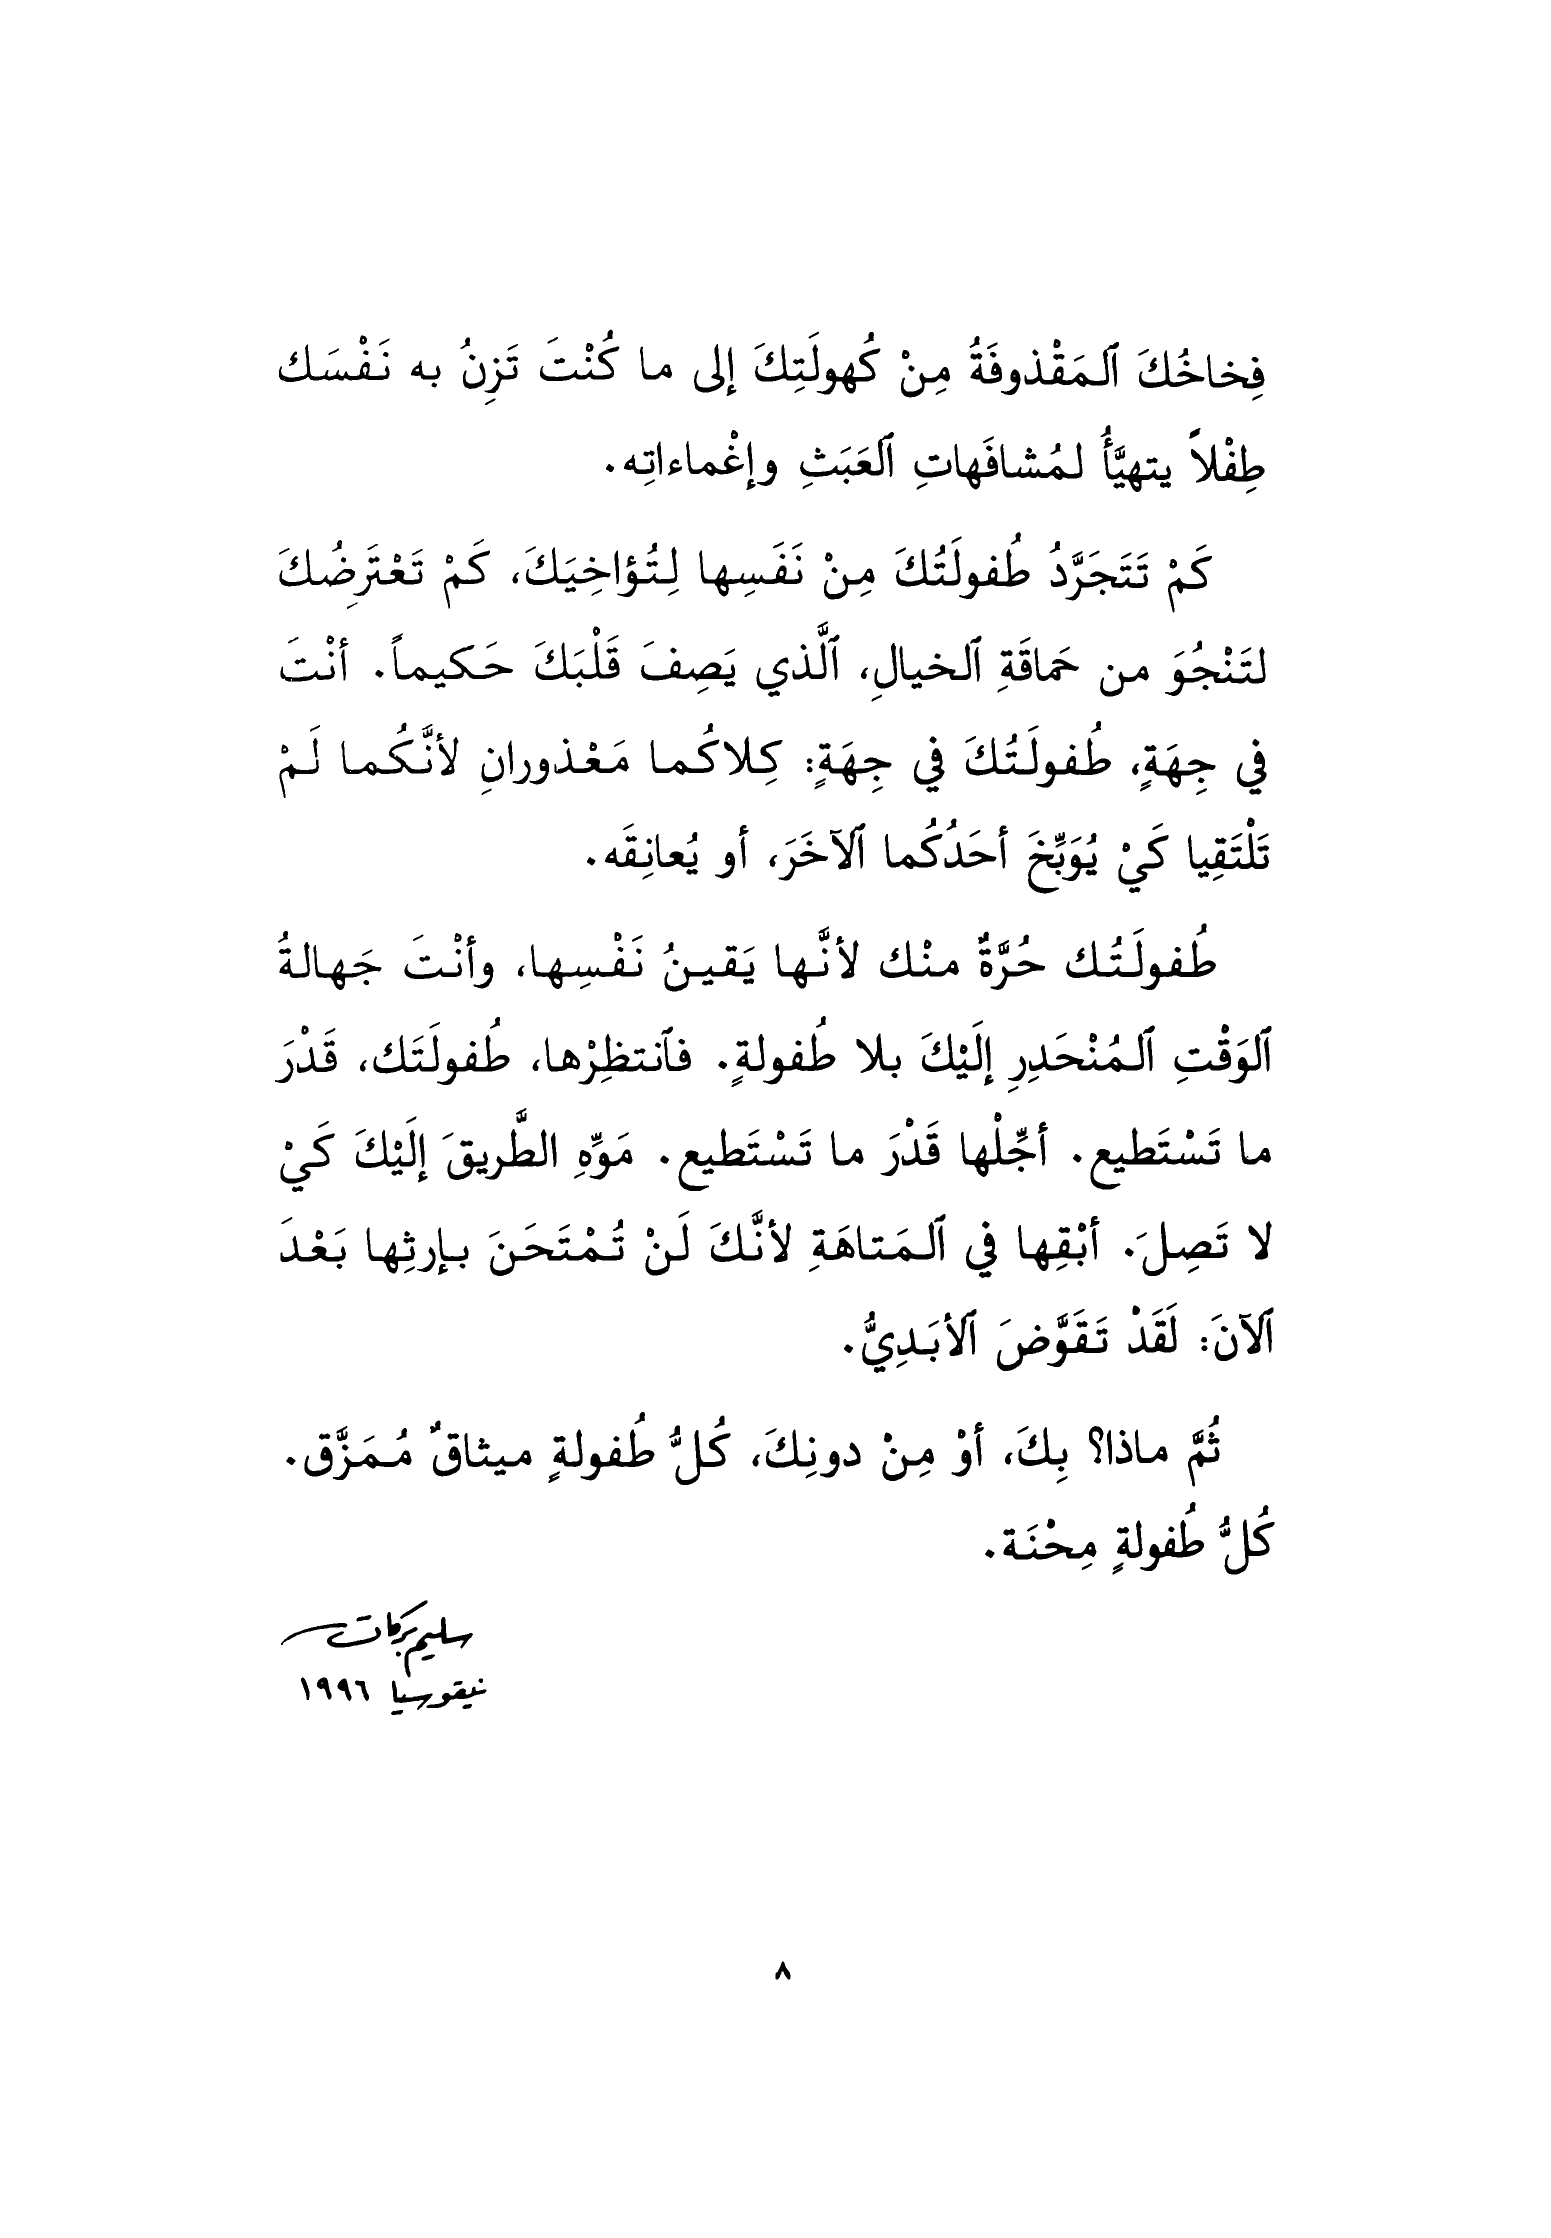 فِخاخُكَ ٱلـمَقْذوفَةُ مِنْ كُهولَتِكَ إلى ما كُنْتَ تَزِنُ به نَفْسَك
طِفْلاً يتهيَّأُ لـمُشافَهاتِ ٱلعَبَثِ وإغْماءاتِه.
كَمْ تَتَجَرَّدُ طُفولَتُكَ مِنْ نَفَسِها لِتُؤاخِيَكَ، كَمْ تَعْتَرِضُكَ
لتَنْجُوَ من حَماقَةِ ٱلخيالِ، ٱلَّذي يَصِفَ قَلْبَكَ حَكيماً. أنْتَ
في جِهَةٍ، طُفولَتُكَ في جِهَةٍ: كِلاكُما مَعْذورانِ لأنَّكُما لَمْ
تَلْتَقِيا كَيْ يُوَبِّخَ أحَدُكُما ٱلآخَرَ، أو يُعانِقَه.
طُفولَتُك حُرَّةٌ منْك لأنَّها يَقينُ نَفْسِها، وأنْتَ جَهالةُ
ٱلوَقْتِ ٱلـمُنْحَدِرِ إلَيْكَ بلا طُفولةٍ. فٱنتظِرْها، طُفولَتَك، قَدْرَ
ما تَسْتَطيع. أجِّلْها قَدْرَ ما تَسْتَطيع. مَوِّهِ الطَّريقَ إلَيْكَ كَيْ
لا تَصِلَ. أبْقِها في ٱلـمَتاهَةِ لأنَّكَ لَنْ تُمْتَحَنَ بإرثِها بَعْدَ
ٱلآنَ: لَقَدْ تَقَوَّضَ ٱلأبَدِيُّ.
ثُمَّ ماذا؟ بِكَ، أوْ مِنْ دونِكَ، كُلُّ طُفولةٍ ميثاقٌ مُمَزَّق.
كُلُّ طُفولةٍ مِحْنَة.
سليم بركات
نيقوسيا ١٩٩٦
٨